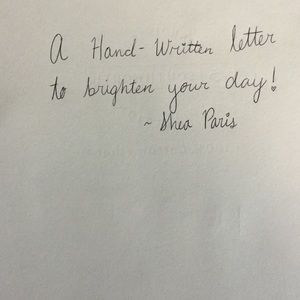 A Hand-Written letter
to brighten your day!
~ Shea Paris